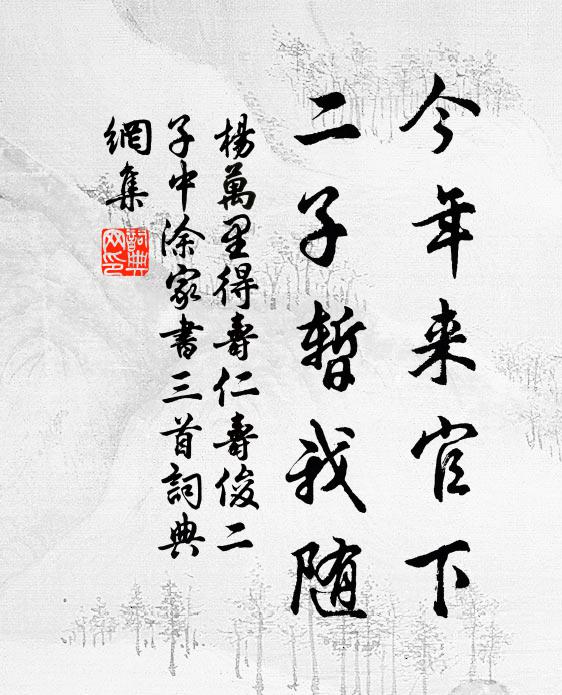 今年来官下
二子暫我随
楊萬里得壽仁壽俊二
子中涂家書三首詞典
網集
詞典
网印